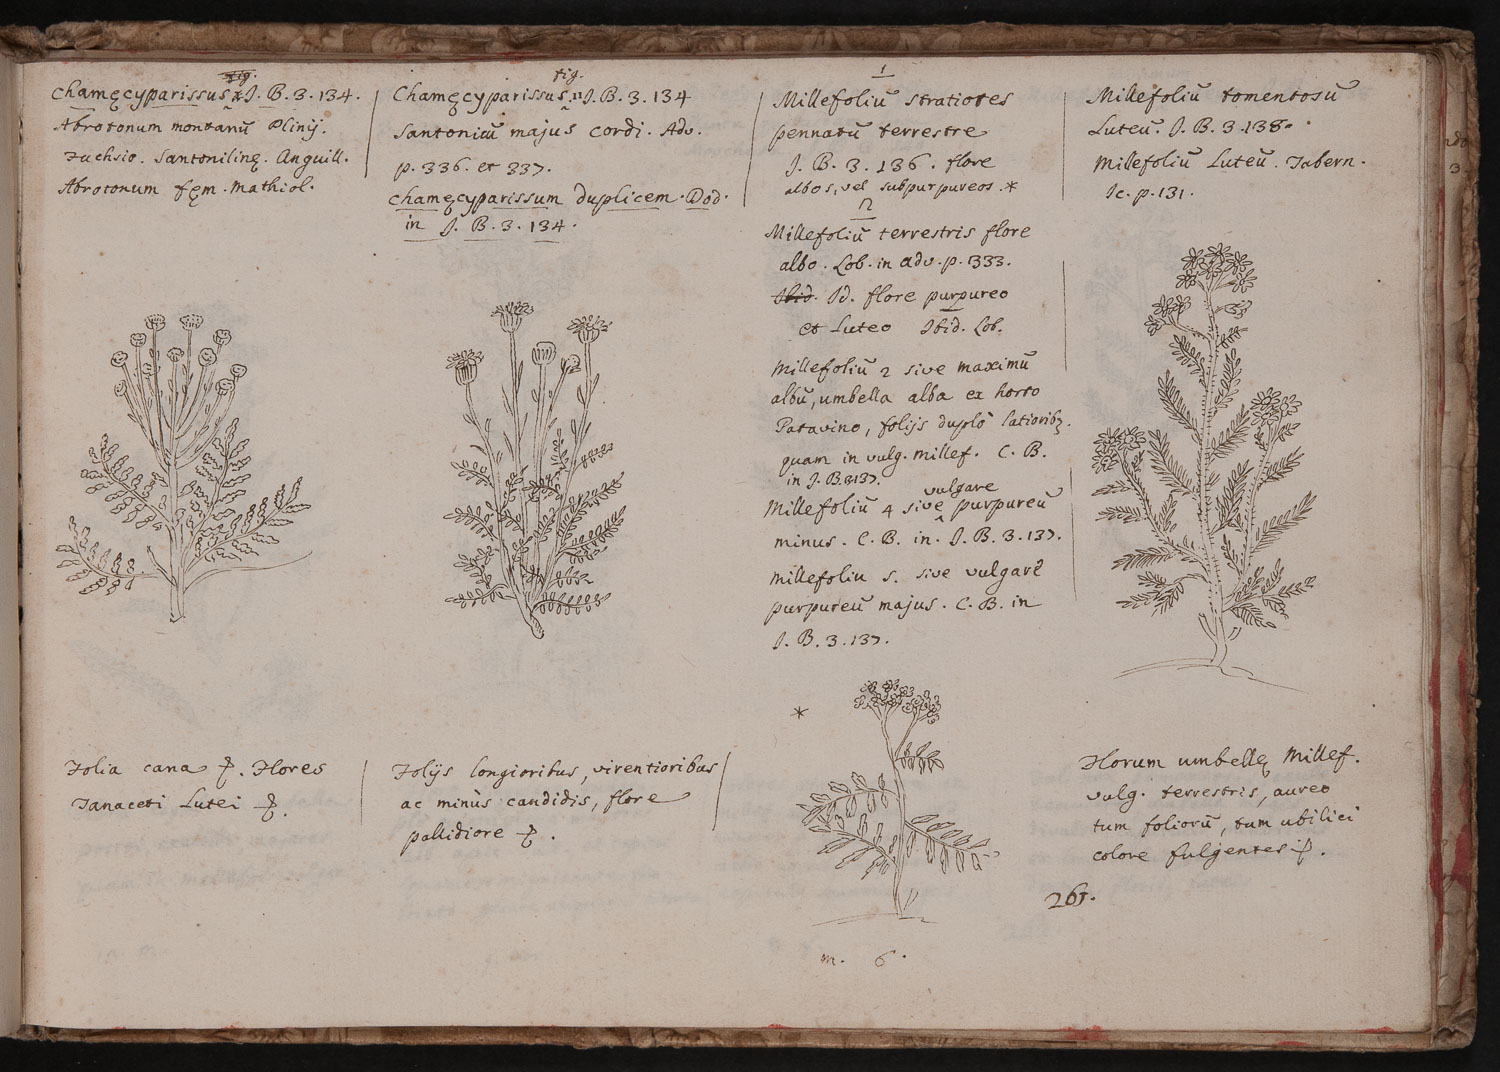 fig.
Chamęcyparissus I. J. B. 3. 134.
Abrotonum montanū Plinij.
Fuchsio. Santonilinę. Anguill.
Abrotonum fęm. Mathiol.
Folia cana ⳨. Flores
Tanaceti Lutei ⳨.
fig.
Chamęcyparissus II J. B. 3. 134
Santonicū majus Cordi. Adv.
p. 336. et 337.
Chamęcyparissum duplicem. Dod.
in J. B. 3. 134.
Folijs longioribus, virentioribus
ac minùs candidis, flore
pallidiore ⳨.
1
Millefoliū stratiotes
pennatū terrestre
J. B. 3. 136. flore
albo s, vel subpurpureo s. *
2
Millefoliū terrestris flore
albo. Lob. in adv. p. 333.
Ibid. Id. flore purpureo
et Luteo Ibid. Lob.
Millefoliū 2 sive maximū
albū, umbella alba ex horto
Patavino, folijs duplò latioribꝫ.
quam in vulg. millef. C. B.
in J. B. 3 137.
vulgare
Millefoliū 4 sive ‸ purpureū
minus. C. B. in. J. B. 3. 137.
Millefoliu 5. sive vulgarē
purpureū majus. C. B. in
J. B. 3. 137.
*
m. 6.
Millefoliū tomentosū
Luteū. J. B. 3. 138.
Millefoliū Luteū. Tabern.
Ic. p. 131.
Florum umbellę Millef.
vulg. terrestris, aureo
tum foliorū, tum ubilici
colore fulgentes ⳨.
261.